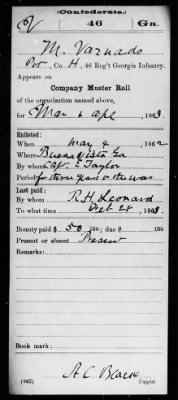 (Confederate)
V 46 Ga.
M. Varnado
Pvt, Co. H, 46 Reg't Georgia Infantry.
Appears on
Company Muster Roll
of the organization named above,
for Mar & Apl, 1863.
Enlisted:
When May 4, 1862
Where Buena Vista Ga
By whom Capt. E Taylor
Period for three years or the war
Last paid:
By whom R. H. Leonard
To what time Feb 28, 1863.
Bounty paid $ 50 /100; due $ /100
Present or absent Present
Remarks:
Book mark:
(642) Copyist.